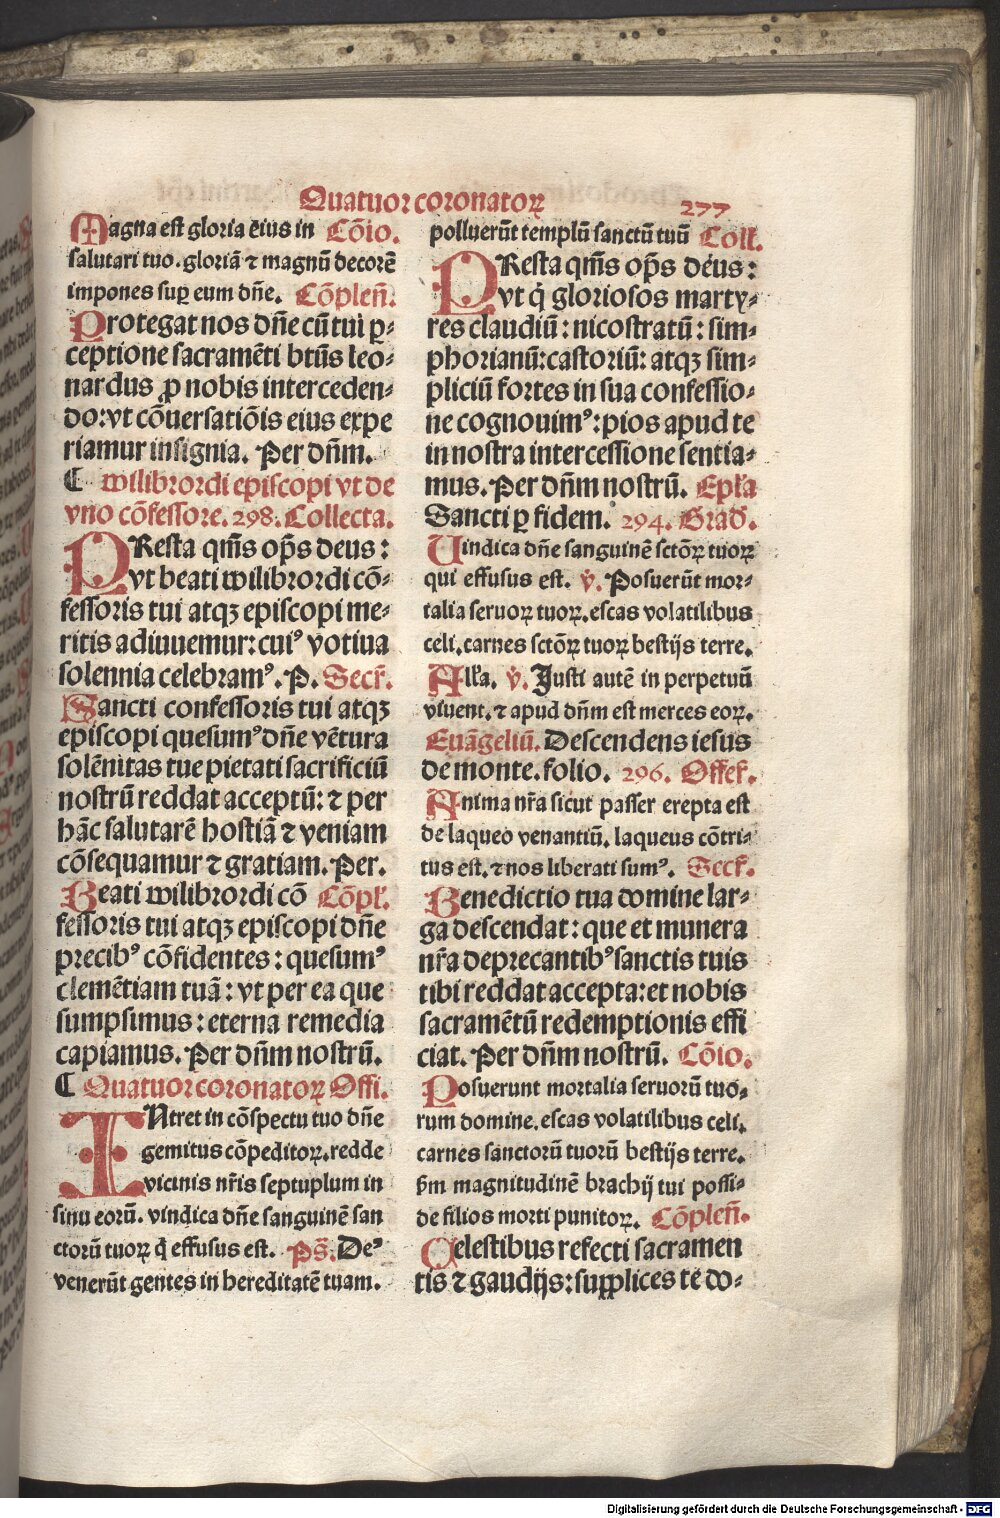 Quatuor coronatoꝝ 277
Magna est gloria eius in Cōio.
salutari tuo. gloriā ⁊ magnū decorē
impones suꝑ eum dn̄e. Cōplen̄.
Protegat nos dn̄e cū tui ꝑ⸗
ceptione sacramēti btūs leo⸗
nardus ꝓ nobis interceden⸗
do: vt cōuersatiōis eius expe
riamur insignia. Per dn̄m.
¶ wilibrordi episcopi vt de
vno cōfessore. 298. Collecta.
PResta qm̄s op̄s deus:
vt beati wilibrordi cō⸗
fessoris tui atqꝫ episcopi me⸗
ritis adiuuemur: cuiꝰ votiua
solennia celebramꝰ. P. Secr̄.
Sancti confessoris tui atqꝫ
episcopi quesumꝰ dn̄e vētura
solēnitas tue pietati sacrificiū
nostrū reddat acceptū: ⁊ per
hāc salutarē hostiā ⁊ veniam
cōsequamur ⁊ gratiam. Per.
Beati wilibrordi cō Cōpl̄.
fessoris tui atqꝫ episcopi dn̄e
precibꝰ cōfidentes: quesumꝰ
clemētiam tuā: vt per ea que
sumpsimus: eterna remedia
capiamus. Per dn̄m nostrū.
¶ Quatuor coronatoꝝ Offi.
INtret in cōspectu tuo dn̄e
gemitus cōpeditoꝝ. redde
vicinis nr̄is septuplum in
sinu eorū. vindica dn̄e sanguinē san
ctorū tuoꝝ q̄ effusus est. Ps̄. Deꝰ
venerūt gentes in hereditatē tuam.
polluerūt templū sanctū tuū Coll.
PResta qm̄s op̄s deus:
vt q̇ gloriosos marty⸗
res claudiū: nicostratū: sim⸗
phorianū: castoriū: atqꝫ sim⸗
pliciū fortes in sua confessio⸗
ne cognouimꝰ: pios apud te
in nostra intercessione sentia⸗
mus. Per dn̄m nostrū. Epl̄a
Sancti ꝑ fidem. 294. Grad̄.
Uindica dn̄e sanguinē sctōꝝ tuoꝝ
qui effusus est. v̇. Posuerūt mor⸗
talia seruoꝝ tuoꝝ. escas volatilibus
celi. carnes sctōꝝ tuoꝝ bestijs terre.
All̄a. v̇. Justi autē in perpetuū
viuent. ⁊ apud dn̄m est merces eoꝝ.
Euāgeliū. Descendens iesus
de monte. folio. 296. Offer̄.
Anima nr̄a sicut passer erepta est
de laqueo venantiū. laqueus cōtri⸗
tus est. ⁊ nos liberati sumꝰ. Secr̄.
Benedictio tua domine lar⸗
ga descendat: que et munera
nr̄a deprecantibꝰ sanctis tuis
tibi reddat accepta: et nobis
sacramētū redemptionis effi
ciat. Per dn̄m nostrū. Cōio.
Posuerunt mortalia seruorū tuo⸗
rum domine. escas volatilibus celi.
carnes sanctorū tuorū bestijs terre.
ẜm magnitudinē brachij tui possi⸗
de filios morti punitoꝝ. Cōplen̄.
Celestibus refecti sacramen
tis ⁊ gaudijs: supplices te do⸗
Digitalisierung gefördert durch die Deutsche Forschungsgemeinschaft - DFG